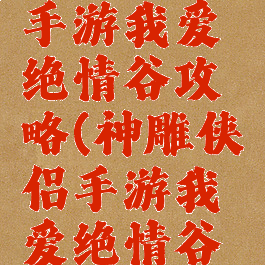 手游我爱
绝情谷攻
略(神雕侠
侣手游我
爱绝情谷